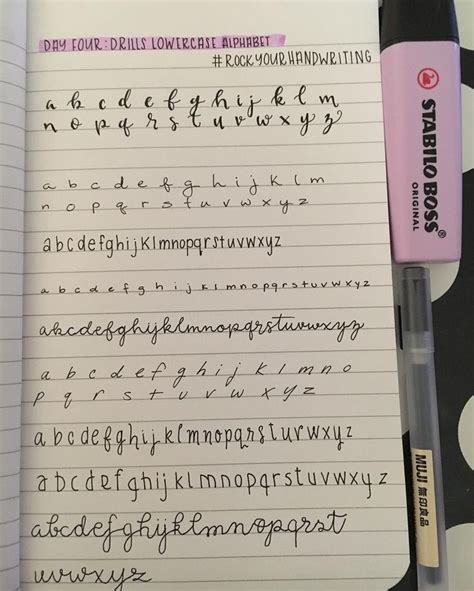 DAY FOUR: DRILLS LOWERCASE ALPHABET
#ROCKYOURHANDWRITING
a b c d e f g h i j k l m
n o p q r s t u v w x y z
a b c d e f g h i j k l m
n o p q r s t u v w x y z
abcdefghijklmnopqrstuvwxyz
a b c d e f g h i j k l m n o p q r s t u v w x y z
abcdefghijklmnopqrstuvwxyz
a b c d e f g h i j k l m n o
p q r s t u v w x y z
abcdefghijklmnopqrstuvwxyz
abcdefghijklmnopqrstuvwxyz
abcdefghijklmnopqrst
uvwxyz
STABILO BOSS
ORIGINAL
MUJI 無印良品